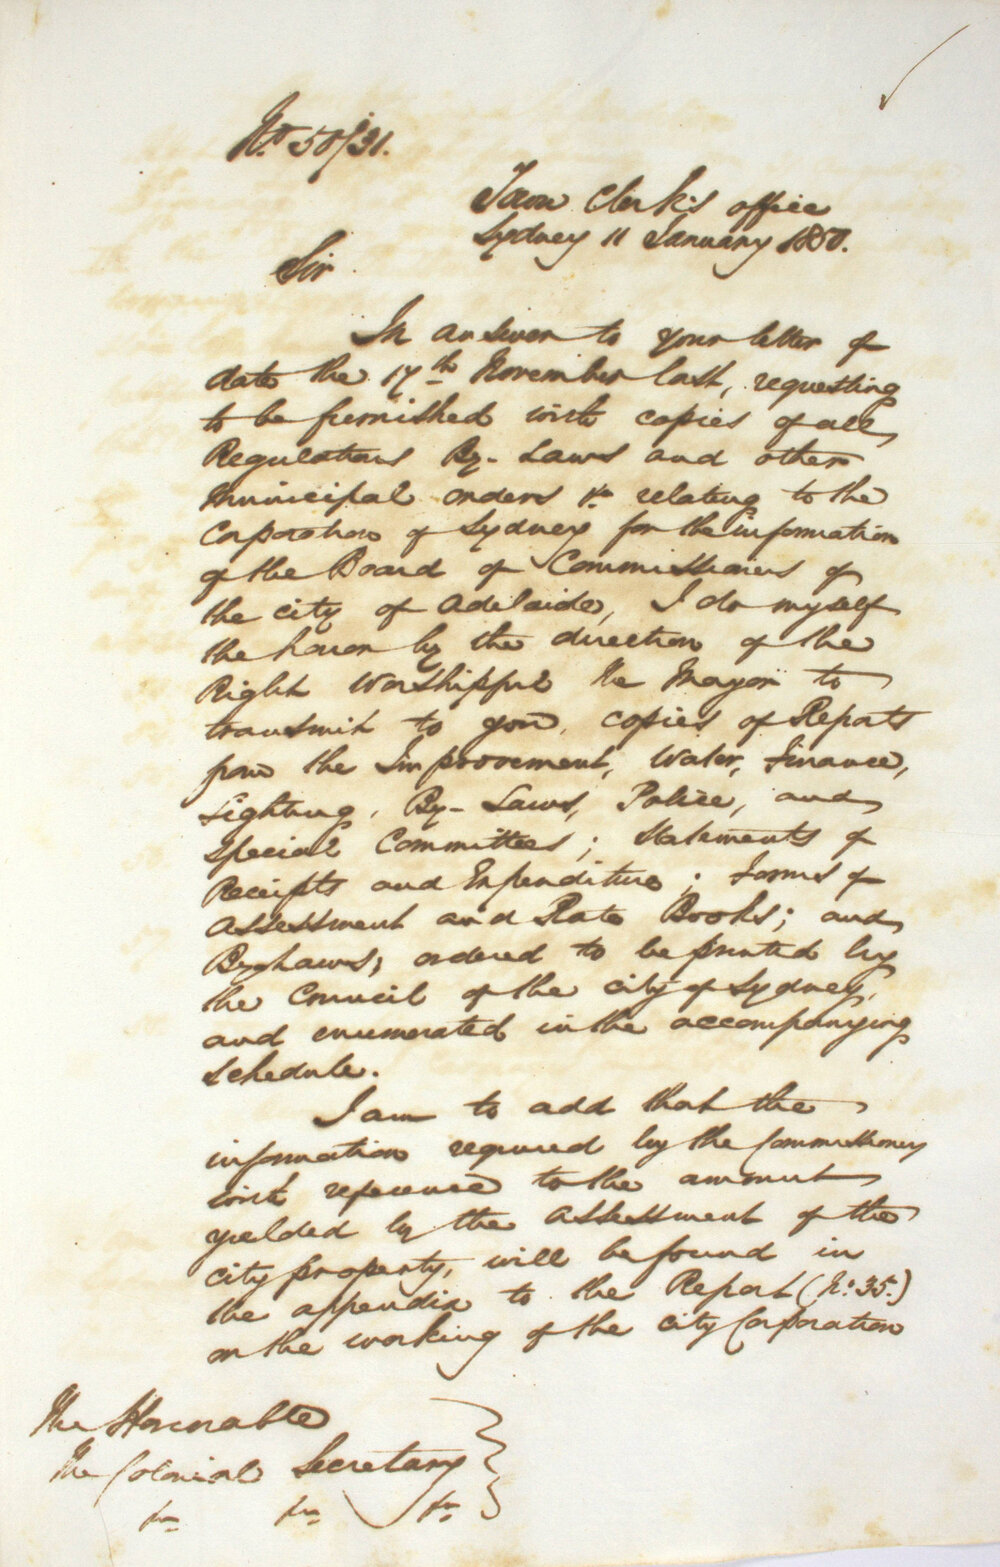 No. 50/31.
Town Clerk's office
Sydney 11 January 1850.
Sir
In answer to your letter of
date the 17th November last, requesting
to be furnished with copies of all
Regulations By-Laws and other
Municipal orders &c relating to the
Corporation of Sydney for the information
of the Board of Commissioners of
the city of Adelaide, I do myself
the honor by the direction of the
Right Worshipful the Mayor to
transmit to you, copies of Reports
from the Improvement, Water, Finance,
Lighting, By-Laws, Police, and
Special Committees; Statements of
Receipts and Expenditure; Forms of
Assessment and Rate Books; and
Byelaws, ordered to be printed by
the Council of the city of Sydney,
and enumerated in the accompanying
Schedule.
I am to add that the
information required by the Commissioners
with reference to the amount
yielded by the assessment of the
city property, will be found in
the appendix to the Report (No: 35.)
on the working of the city Corporation
The Honorable
The Colonial Secretary
&c &c &c